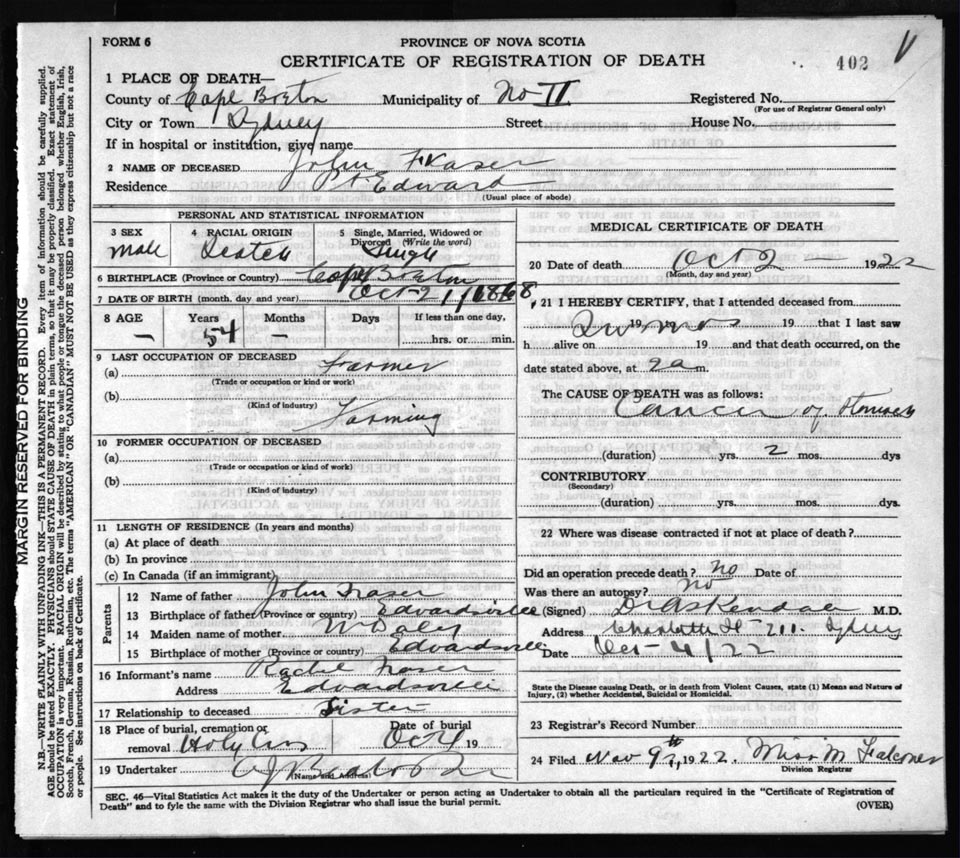 FORM 6
PROVINCE OF NOVA SCOTIA
CERTIFICATE OF REGISTRATION OF DEATH
402
1 PLACE OF DEATH—
County of Cape Breton Municipality of No II Registered No.
(For use of Registrar General only)
City or Town Sydney Street House No.
If in hospital or institution, give name
2 NAME OF DECEASED John Fraser
Residence Edward
(Usual place of abode)
PERSONAL AND STATISTICAL INFORMATION
3 SEX 4 RACIAL ORIGIN 5 Single, Married, Widowed or Divorced (Write the word)
male Scotch Single
6 BIRTHPLACE (Province or Country) Cape Breton
7 DATE OF BIRTH (month, day and year) Oct 2 1868
8 AGE Years Months Days If less than one day,
— 54 — hrs. or min.
9 LAST OCCUPATION OF DECEASED
(a) Farmer
(Trade or occupation or kind or work)
(b)
(Kind of industry)
Farming
10 FORMER OCCUPATION OF DECEASED
(a)
(Trade or occupation or kind or work)
(b)
(Kind of industry)
11 LENGTH OF RESIDENCE (In years and months)
(a) At place of death
(b) In province
(c) In Canada (if an immigrant)
Parents
12 Name of father John Fraser
13 Birthplace of father (Province or country) Edwardsville
14 Maiden name of mother
15 Birthplace of mother (Province or country) Edwardsville
16 Informant's name Rachel Fraser
Address Edwardsville
17 Relationship to deceased Sister
18 Place of burial, cremation or removal Holy Cross Date of burial Oct 4 19
19 Undertaker
(Name and Address)
MEDICAL CERTIFICATE OF DEATH
20 Date of death Oct 2 1922
(Month, day and year)
21 I HEREBY CERTIFY, that I attended deceased from
2 mos 19 19 that I last saw
h alive on 19 and that death occurred, on the
date stated above, at 9 a m.
The CAUSE OF DEATH was as follows:
Cancer of Stomach
(duration) yrs. 2 mos. dys
CONTRIBUTORY
(Secondary)
(duration) yrs. mos. dys.
22 Where was disease contracted if not at place of death?
Did an operation precede death? no Date of
Was there an autopsy? no
(Signed) M.D.
Address Charlotte St 211. Sydney
Date Oct 4/22
State the Disease causing Death, or in death from Violent Causes, state (1) Means and Nature of
Injury, (2) whether Accidental, Suicidal or Homicidal.
23 Registrar's Record Number
24 Filed Nov 9th, 1922. Miss M Falconer
Division Registrar
SEC. 46—Vital Statistics Act makes it the duty of the Undertaker or person acting as Undertaker to obtain all the particulars required in the "Certificate of Registration of
Death" and to fyle the same with the Division Registrar who shall issue the burial permit.
(OVER)
MARGIN RESERVED FOR BINDING
N.B.—WRITE PLAINLY WITH UNFADING INK—THIS IS A PERMANENT RECORD. Every item of information should be carefully supplied.
AGE should be stated EXACTLY. PHYSICIANS should STATE CAUSE OF DEATH in plain terms, so that it may be properly classified. Exact statement of
OCCUPATION is very important. RACIAL ORIGIN will be described by stating to what people or tongue the deceased person belonged whether English, Irish,
Scotch, French, German, Russian, Ruthenian, etc. The terms "AMERICAN" OR "CANADIAN" MUST NOT BE USED as they express citizenship but not a race
or people. See instructions on back of Certificate.